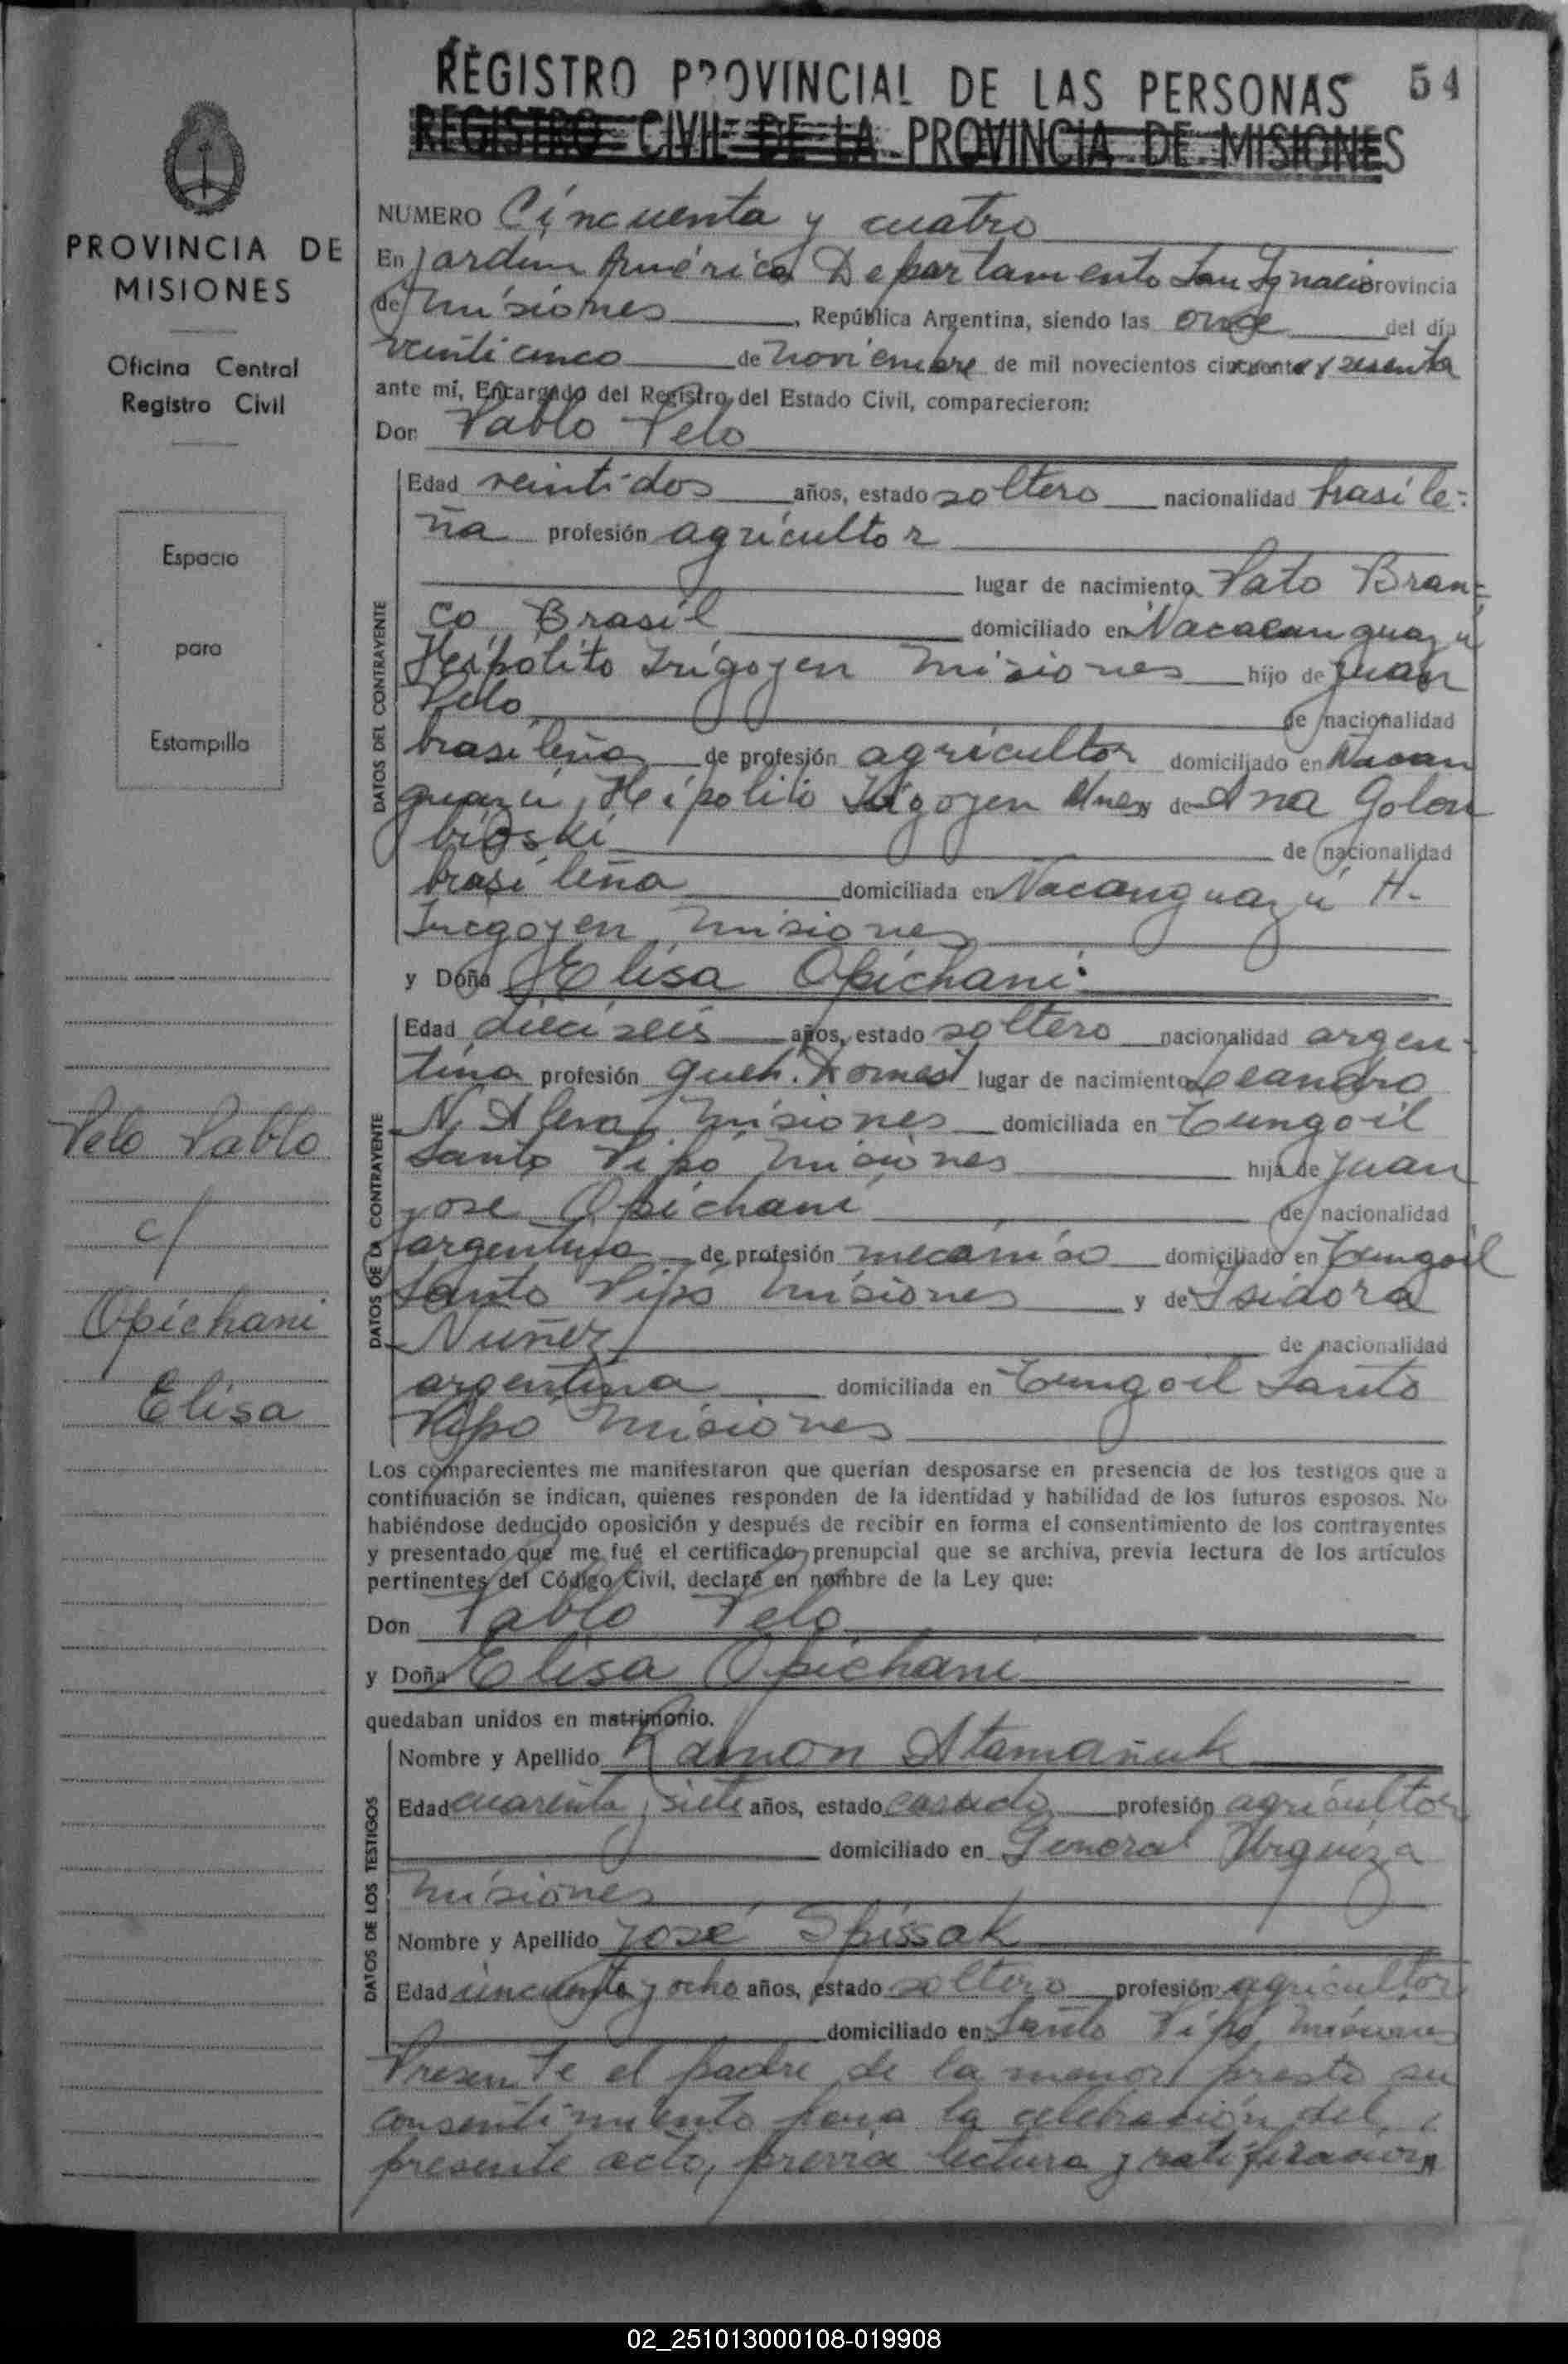 REGISTRO PROVINCIAL DE LAS PERSONAS 54
REGISTRO CIVIL DE LA PROVINCIA DE MISIONES
PROVINCIA DE
MISIONES
Oficina Central
Registro Civil
Espacio
para
Estampilla
Velo Pablo
c/
Opichani
Elisa
NUMERO Cincuenta y cuatro
En Jardín América Departamento San Ignacio Provincia
de Misiones, República Argentina, siendo las once del día
veinticinco de noviembre de mil novecientos cincuenta y sesenta
ante mí, Encargado del Registro del Estado Civil, comparecieron:
Don Pablo Velo
DATOS DEL CONTRAYENTE
Edad veintidos años, estado soltero nacionalidad brasile-
ña profesión agricultor
lugar de nacimiento Pato Bran-
co Brasil domiciliado en
Heipolito Irigoyen Misiones hijo de Juan
Velo de nacionalidad
brasileña de profesión agricultor domiciliado en
guazu, Heipolito Irigoyen de Ana Golon
bioski de nacionalidad
brasileña domiciliada en Nacanguazu H.
Iregoyen Misiones
y Doña Elisa Opichani
DATOS DE LA CONTRAYENTE
Edad dieciseis años, estado soltero nacionalidad argen-
tina profesión queh. Domest lugar de nacimiento Leandro
N. Alem Misiones domiciliada en Tungoil
Santo Pipó Misiones hija de Juan
Jose Opichani de nacionalidad
argentina de profesión mecánico domiciliado en Tungoil
Santo Pipó Misiones y de Isidora
Nuñez de nacionalidad
argentina domiciliada en Tungoil Santo
Pipo Misiones
Los comparecientes me manifestaron que querían desposarse en presencia de los testigos que a
continuación se indican, quienes responden de la identidad y habilidad de los futuros esposos. No
habiéndose deducido oposición y después de recibir en forma el consentimiento de los contrayentes
y presentado que me fué el certificado prenupcial que se archiva, previa lectura de los artículos
pertinentes del Código Civil, declaré en nombre de la Ley que:
Don Pablo Velo
y Doña Elisa Opichani
quedaban unidos en matrimonio.
DATOS DE LOS TESTIGOS
Nombre y Apellido Ramon Atamañuk
Edad cuarenta y siete años, estado casado profesión agricultor
domiciliado en General Urquiza
Misiones
Nombre y Apellido José Spissak
Edad cincuenta y ocho años, estado soltero profesión agricultor
domiciliado en Santo Pipó Misiones
Presente el padre de la menor presto su
consentimiento para la celebración del
presente acto, previa lectura y ratificación
02_251013000108-019908